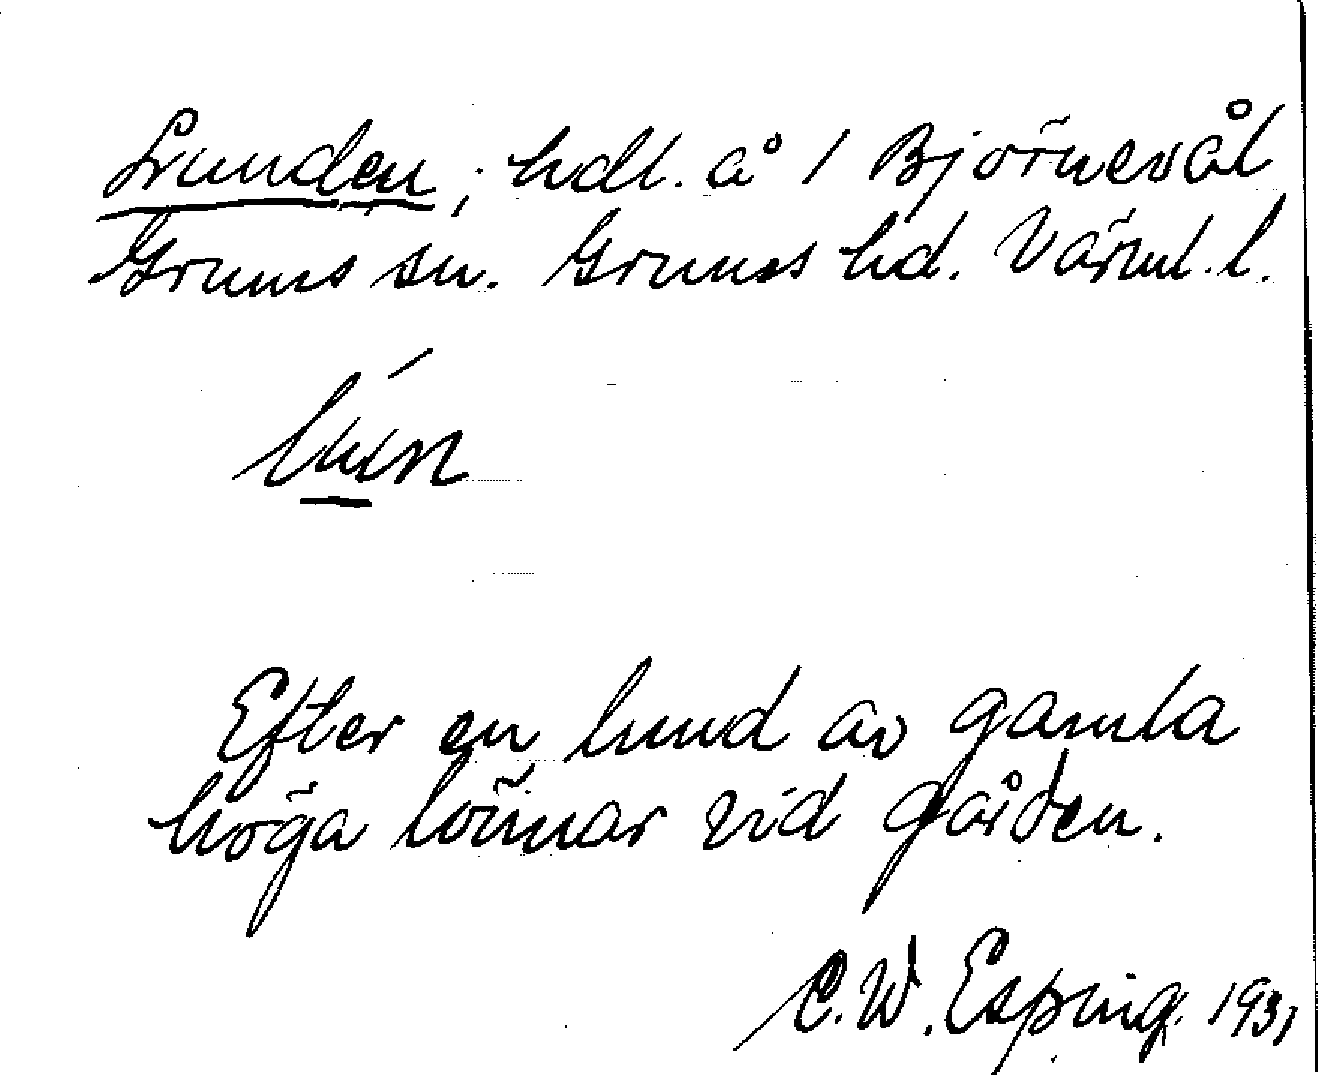 Lunden, hdl. å 1 Björnevål
Grums sn. Grums hd. Värml. l.
Efter en lund av gamla
höga lönnar vid gården.
C.W. Esping. 1931